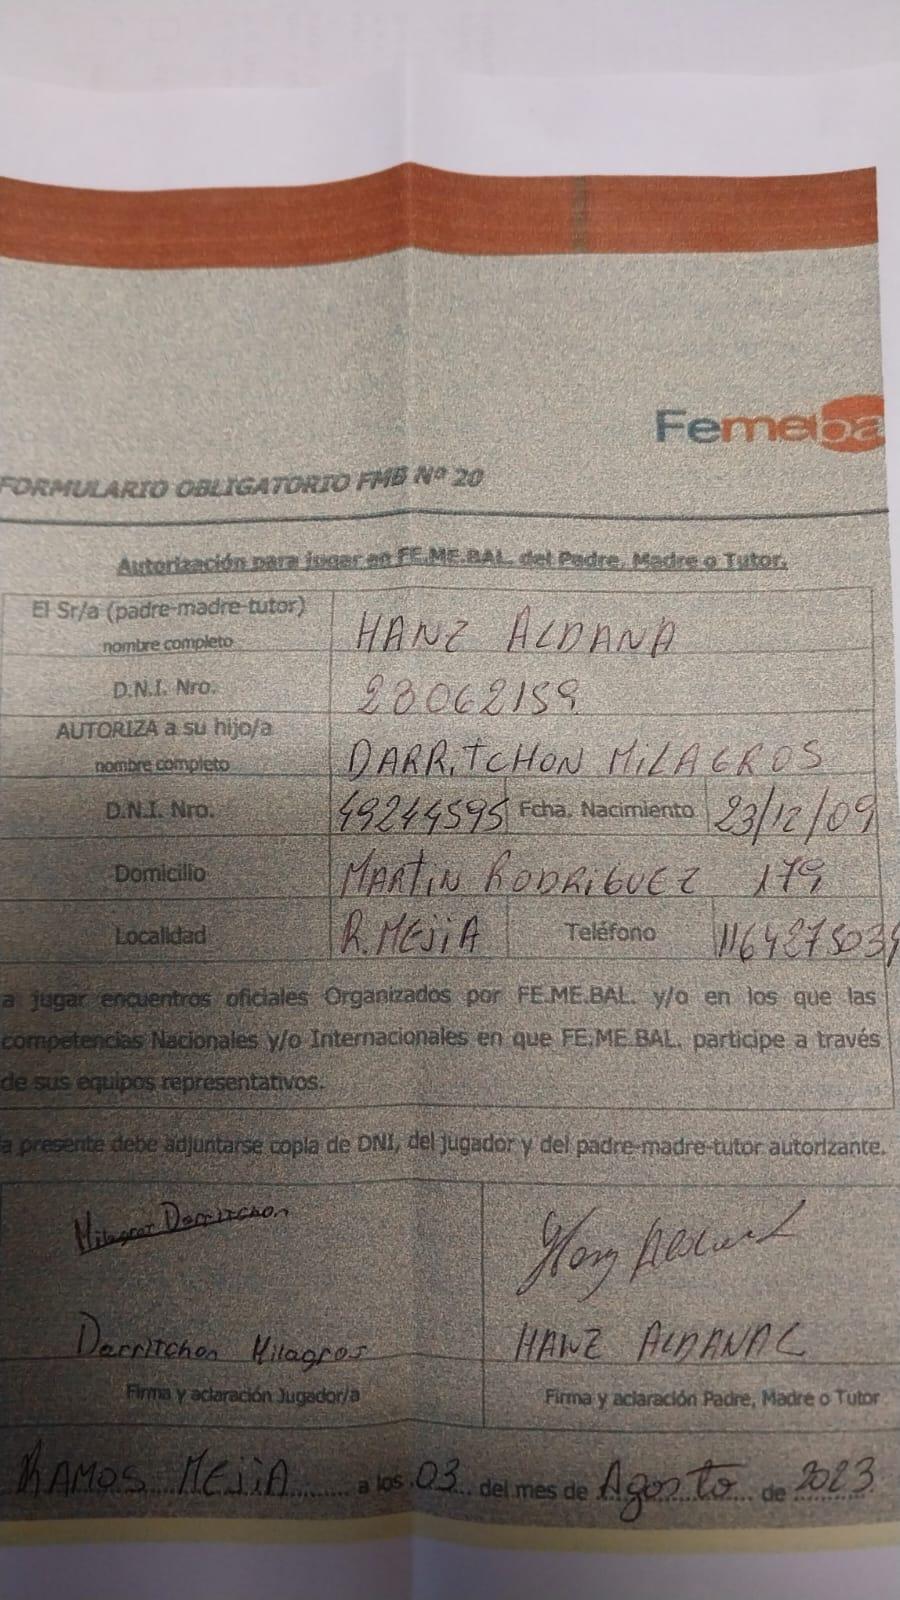 Femeba
FORMULARIO OBLIGATORIO FMB Nº 20
Autorización para jugar en FE.ME.BAL. del Padre, Madre o Tutor.
El Sr/a (padre-madre-tutor)
nombre completo
HANZ ALDANA
D.N.I. Nro.
23062159
AUTORIZA a su hijo/a
nombre completo
DARRITCHON MILAGROS
D.N.I. Nro. 49244595 Fcha. Nacimiento 23/12/09
Domicilio MARTIN RODRIGUEZ 179
Localidad R.MEJIA Teléfono
a jugar encuentros oficiales Organizados por FE.ME.BAL. y/o en los que las
competencias Nacionales y/o Internacionales en que FE.ME.BAL. participe a través
de sus equipos representativos.
a presente debe adjuntarse copia de DNI, del jugador y del padre-madre-tutor autorizante.
Milagros Darritchon
Darritchon Milagros HANZ ALDANA C
Firma y aclaración Jugador/a Firma y aclaración Padre, Madre o Tutor
RAMOS MEJIA a los 03 del mes de Agosto de 2023